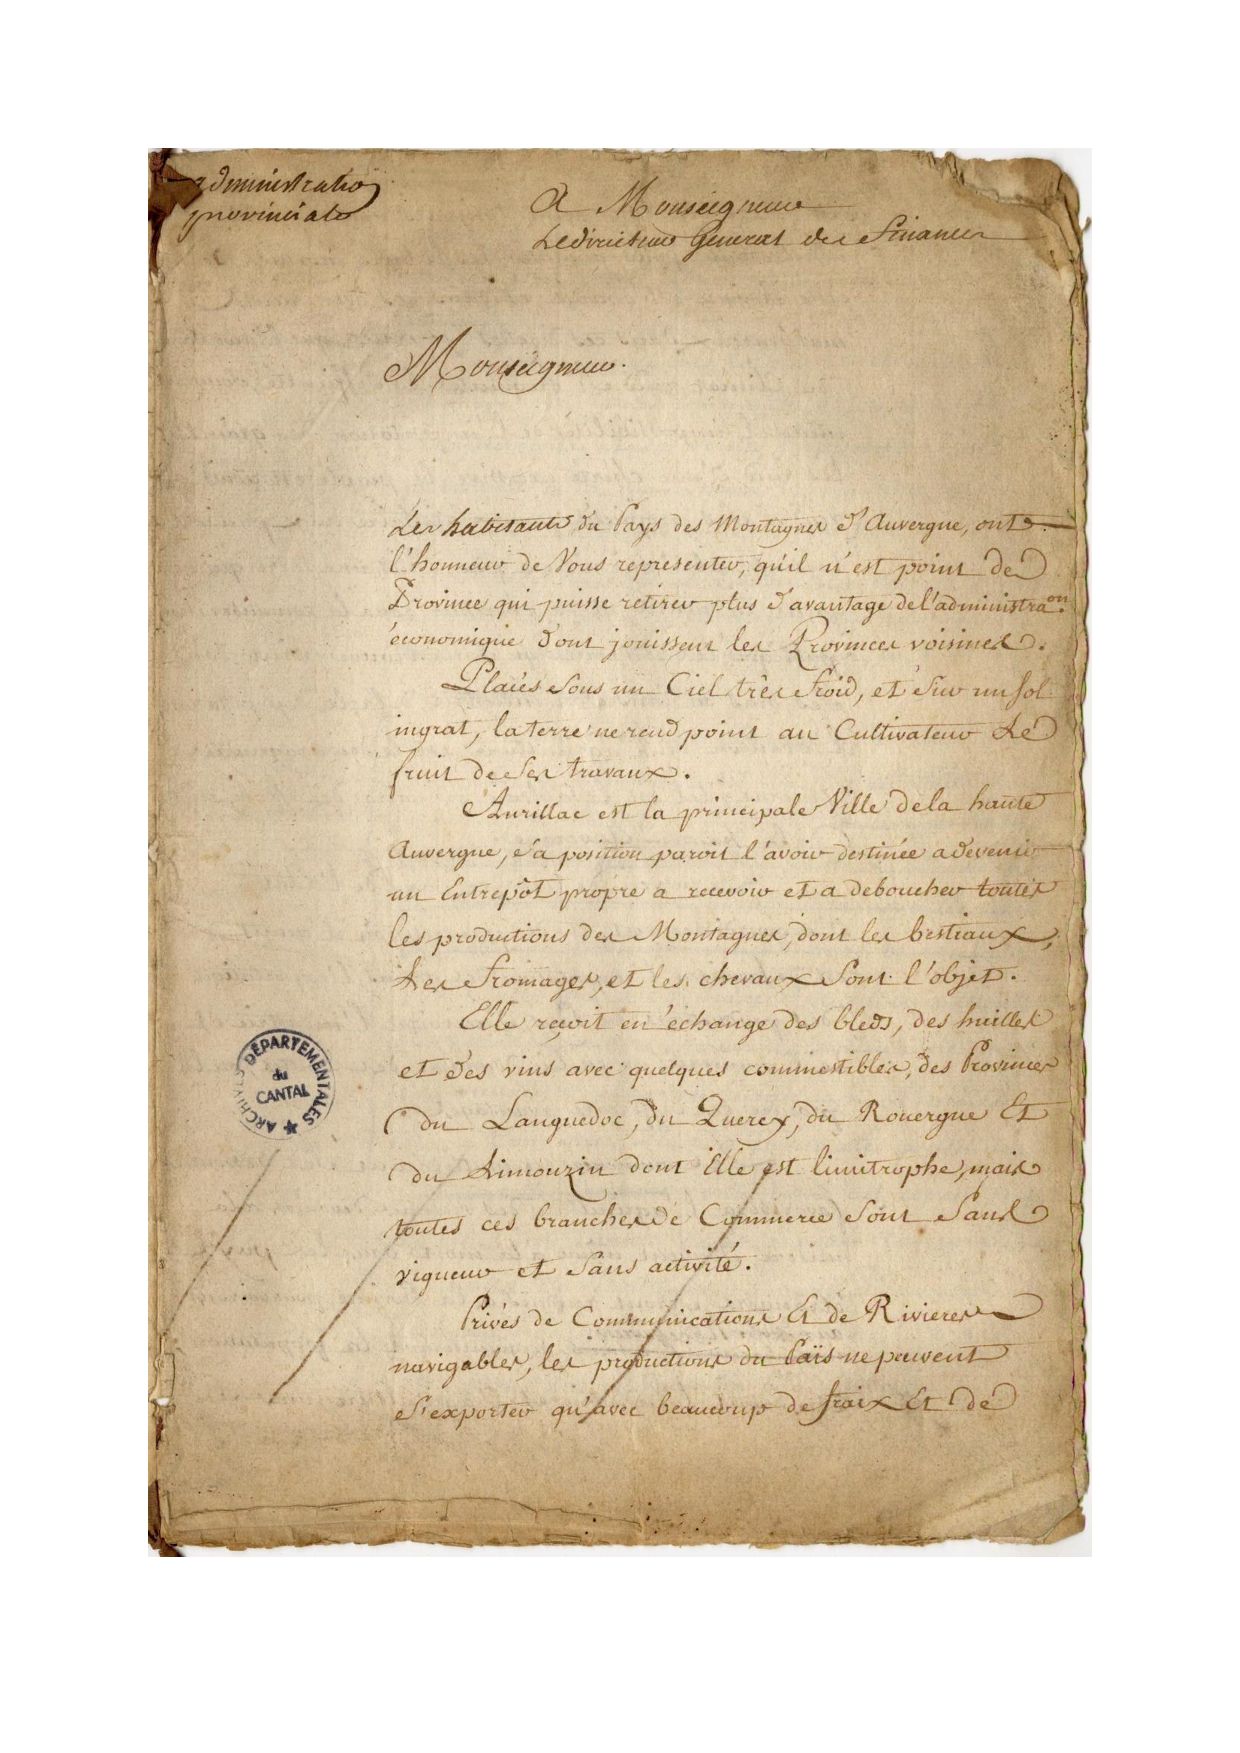 administratio
provinciale
A Monseigneur
Le directeur General des Finances
Monseigneur.
Les habitants du Pays des Montagnes d'Auvergne, ont
l'honneur de Vous representer, qu'il n'est point de
Province qui puisse retirer plus d'avantage de l'administraon.
économique dont jouissent les Provinces voisines.
Placés sous un Ciel très froid, et sur un sol
ingrat, la terre ne rend point au Cultivateur le
fruit de ses travaux.
Aurillac est la principale Ville de la haute
Auvergne, sa position paroit l'avoir destinée a devenir
un Entrepôt propre a recevoir et a deboucher toutes
les productions des Montagnes, dont les bestiaux,
les fromages, et les chevaux sont l'objet.
Elle reçoit en échange des bleds, des huilles
et des vins avec quelques commestibles, des Provinces
du Languedoc, du Quercy, du Rouergue Et
du Limouzin dont Elle est limitrophe, mais
toutes ces branches de Commerce sont sans
vigueur et sans activité.
Privés de Communications Et de Rivieres
navigables, les productions du Païs ne peuvent
s'exporter qu'avec beaucoup de fraix Et de
ARCHIVES DÉPARTEMENTALES
du
CANTAL